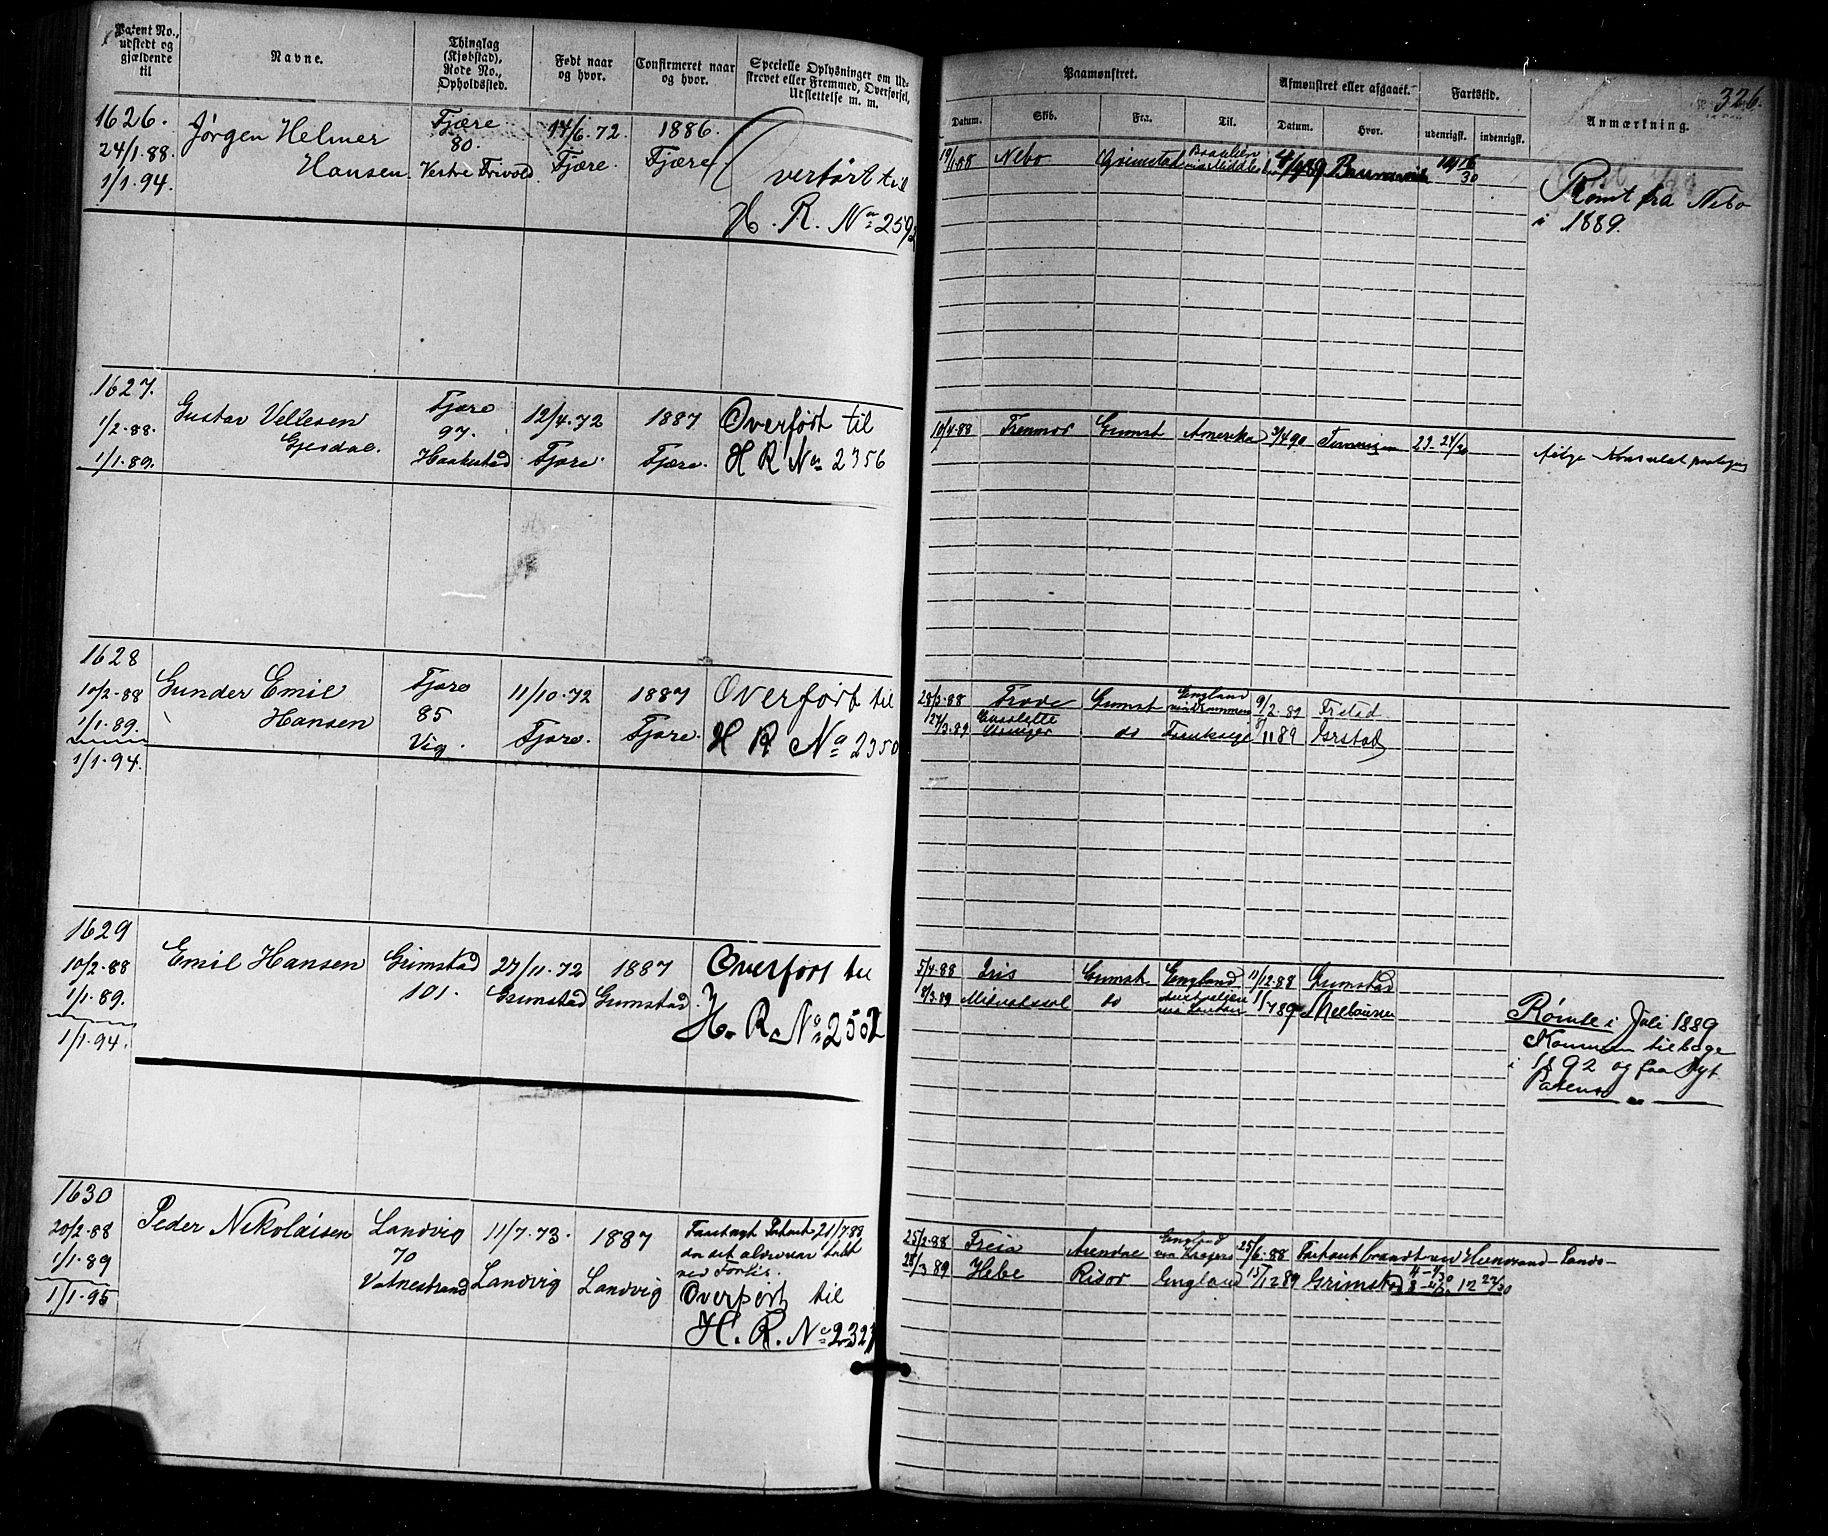 Patent No., udstedt og gjældende til
Navne.
Thinglag (Kjøbstad), Rode No., Opholdssted.
Født naar og hvor.
Confirmeret naar og hvor.
Specielle Oplysninger om Udskrevet eller Fremmed, Overførsel, Udslettelse m. m.
1626.
24/1.88.
1/1.94.
Jørgen Helmer
Hansen.
Fjære
80.
Vestre Frivold
14/6.72.
Fjære.
1886.
Fjære
Overført til
H. R. No 2592
1627.
1/2.88.
1/1.89.
Gustav Vellesen
Gjesdal.
Fjære
97.
Haakestad
12/4.72
Fjære.
1887
Fjære.
Overført til
H R No 2356
1628
10/2.88
1/1.89.
1/1.94.
Gunder Emil
Hansen
Fjære
85
Vig.
11/10.72
Fjære.
1887
Fjære.
Overført til
H R No 2350
1629
10/2.88
1/1.89.
1/1.94.
Emil Hansen
Grimstad
101.
27/11.72
Grimstad
1887
Grimstad
Overført til
H. R. No 2502
1630
20/2.88
1/1.89
1/1.95
Peder Nikolaisen
Landvig
70
Vatnestrand
11/7.73.
Landvig
1887
Landvig
21/7.88
tabt
ved Forlis.
Overført til
H. R. No 2327
326.
Paamønstret.
Afmønstret eller afgaaet.
Fartstid.
Anmærkning.
Datum.
Skib.
Fra.
Til.
Datum.
Hvor.
udenrigsk.
indenrigsk.
19/1.88
Nebo
Grimstad
Brasilien
Rømt fra Nebo
i 1889.
10/4.88
Grimst
Amerika
3/4 90
23 24/30
28/3.88
Frode
Grimst
England
9/2.89
27/3.89
do
5/4.88
Iris
Grimst
England
11/12.88
Grimstad
8/3.89
do
Rømte i Juli 1889
Kommen tilbage
i 1892 og faa Nyt
Patent
25/2.88
Freia
Arendal
England
25/6.88
28/3 89
Hebe
Risør
England
15/12 89
Grimstad
12 27/30